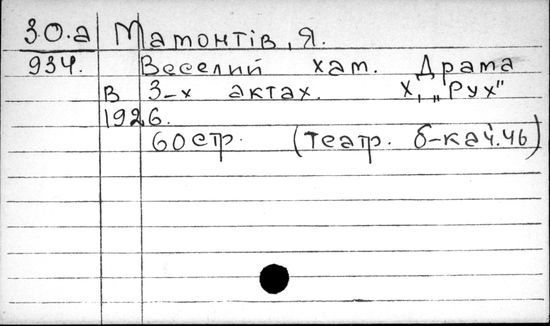 3.0.а Мамонтів, Я.
934. Веселий хам. Драма
В 3-х актах. Х., „Рух"
1926.
60 стр. (театр. б-ка ч.46)